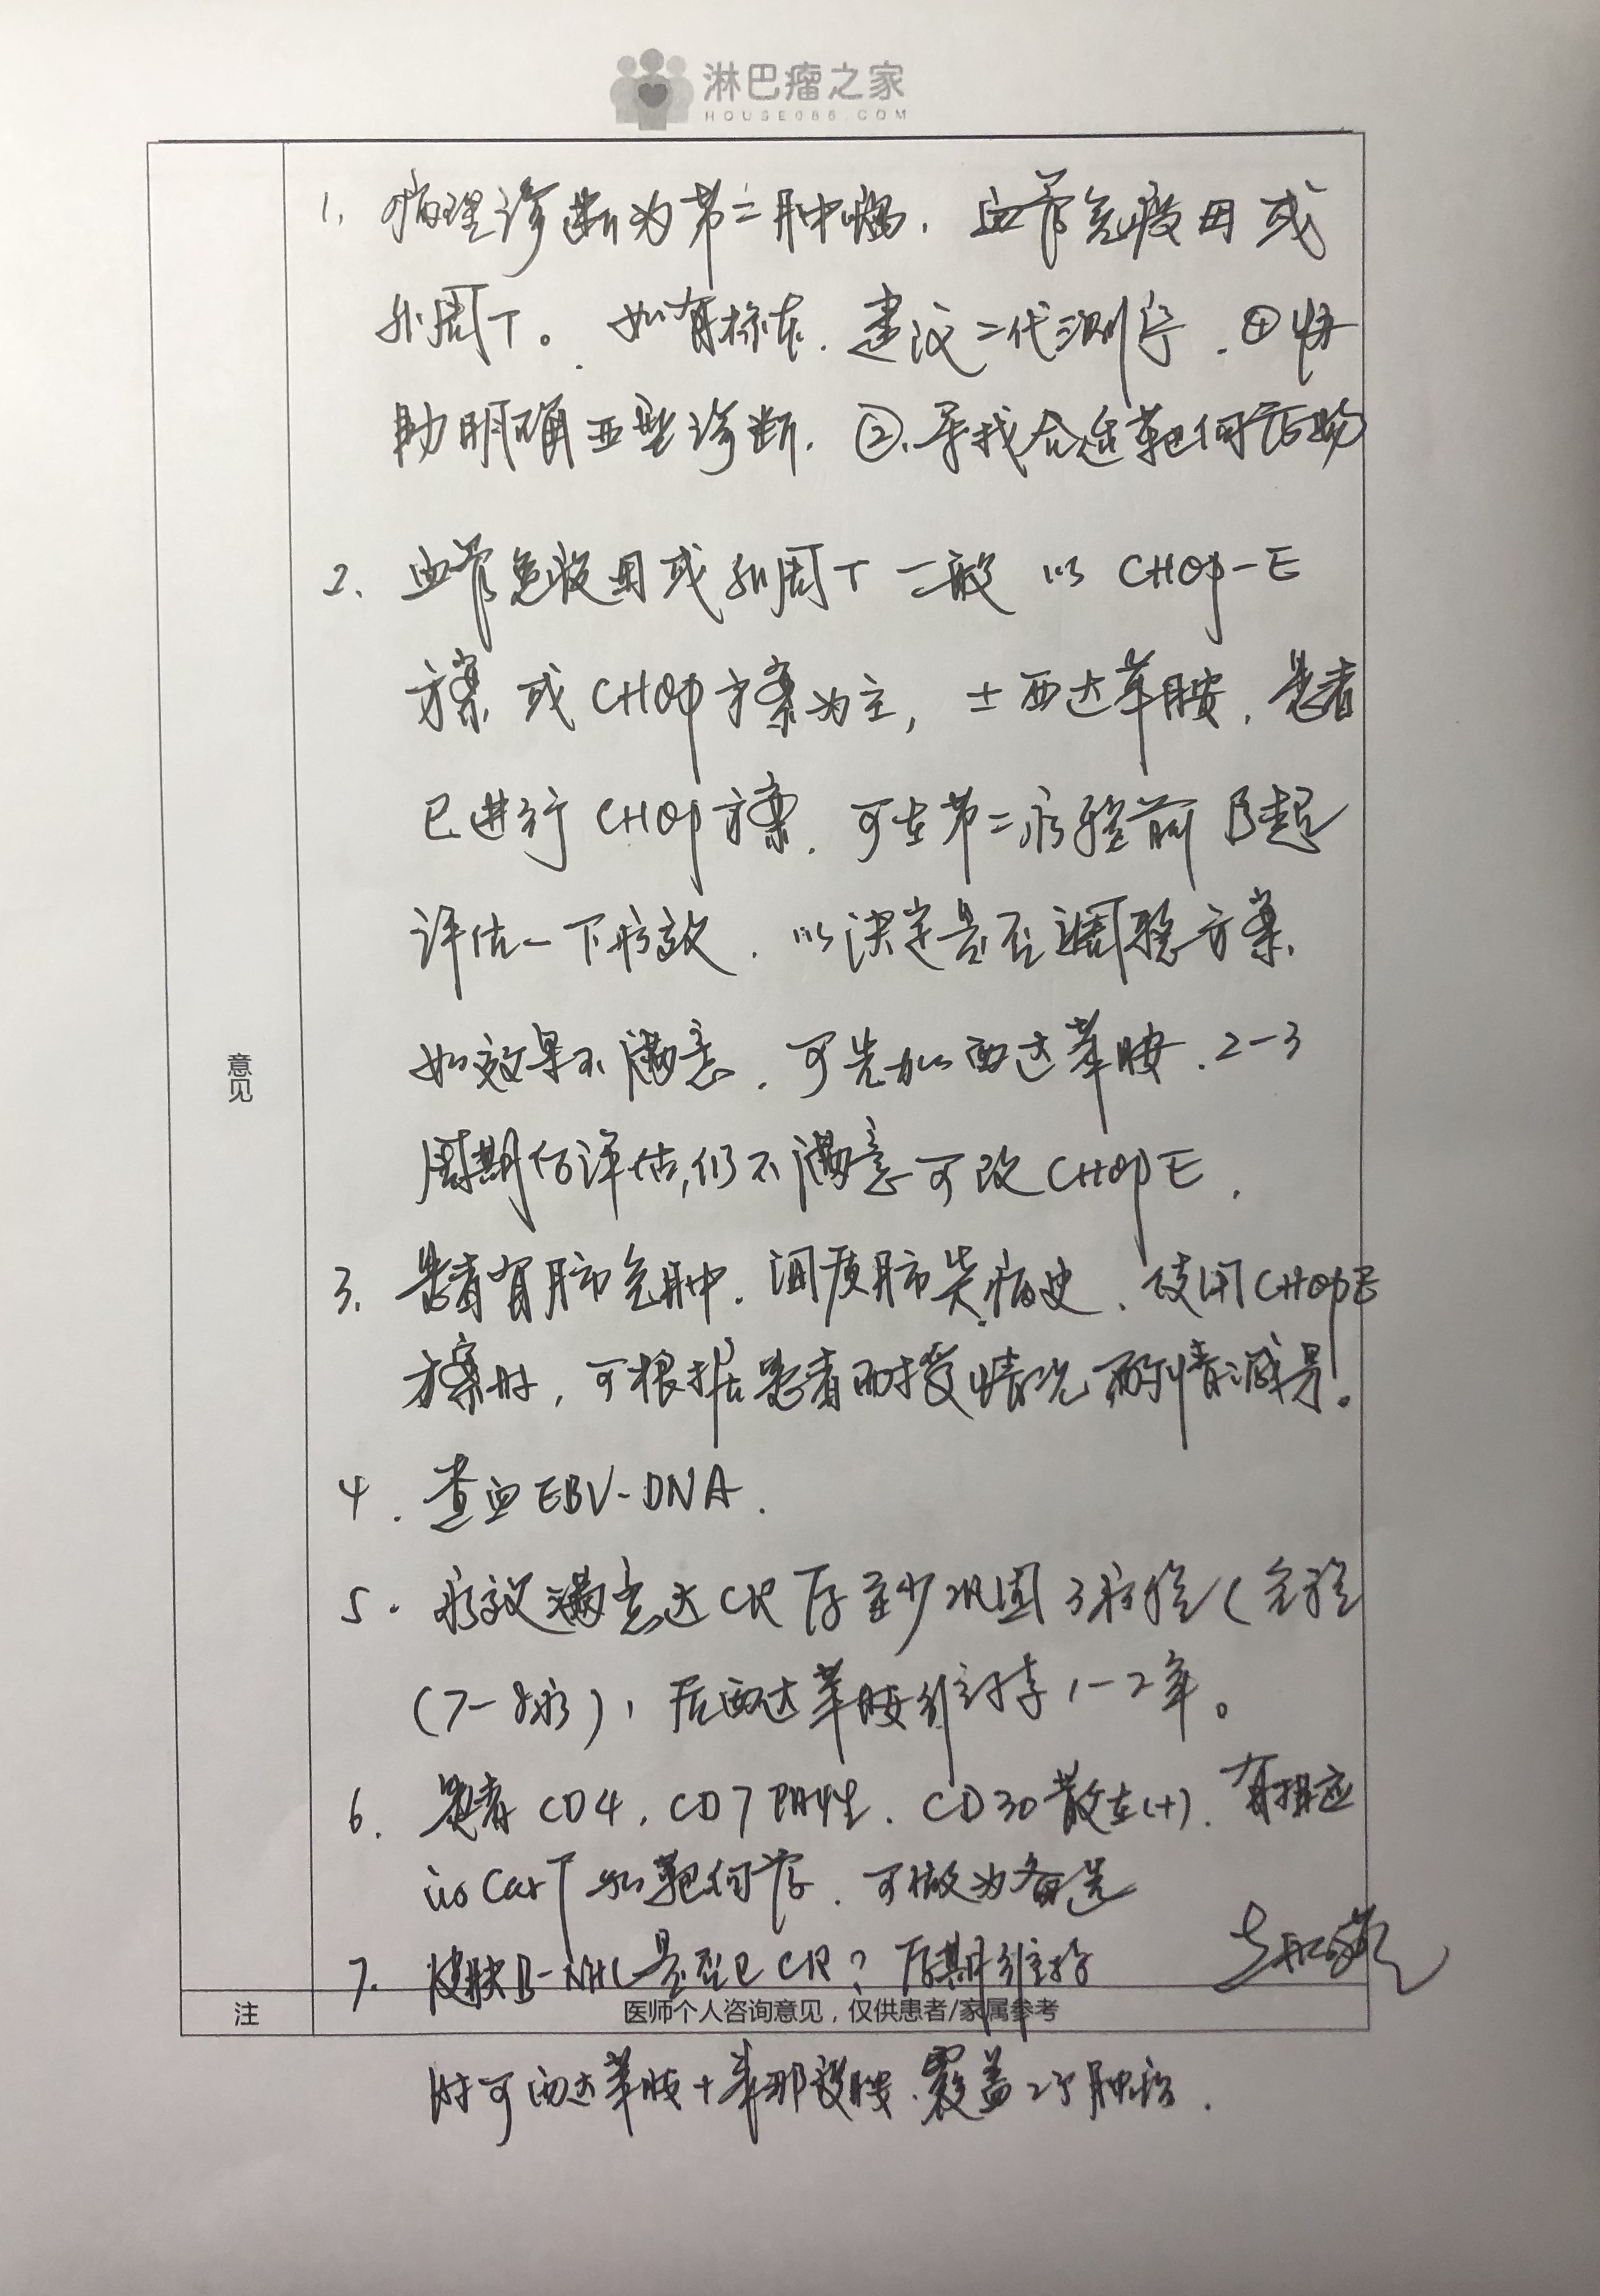 淋巴瘤之家
HOUSE086.COM
1、病理诊断为第二肿瘤，血管免疫母或
外周T。如有标本，建议二代测序，①协
助明确亚型诊断，②、寻找合适靶向药物
2、血管免疫母或外周T一般以CHOP-E
方案或CHOP方案为主，±西达苯胺，患者
已进行CHOP方案，可在第二疗程前
评估一下疗效，以决定是否调整方案，
如效果不满意，可先加西达苯胺，2-3
周期后评估，仍不满意可改CHOPE，
意见
3、患者有肺气肿，间质肺炎病史，使用CHOPE
方案时，可根据患者耐受情况酌情减量。
4、查血EBV-DNA.
5、疗效满意达CR后至少巩固3疗程（全程
（7-8疗），后西达苯胺维持1-2年。
6、患者CD4，CD7阳性，CD30散在(+)，有相应
CarT和靶向药，可做为备选
7、皮肤B-NHL是否已CR？后期维持
注
医师个人咨询意见，仅供患者/家属参考
时可西达苯胺+来那度胺，覆盖2个肿瘤.